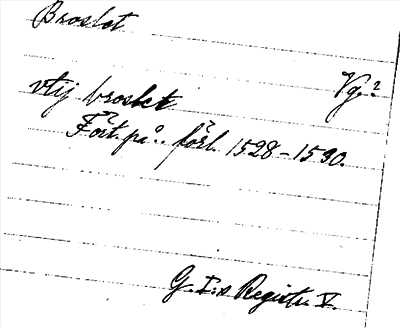 Broslet
Vg.?
vtij broslet
Fört. på .. förl. 1528-1530.
G. I:s Registr. V.